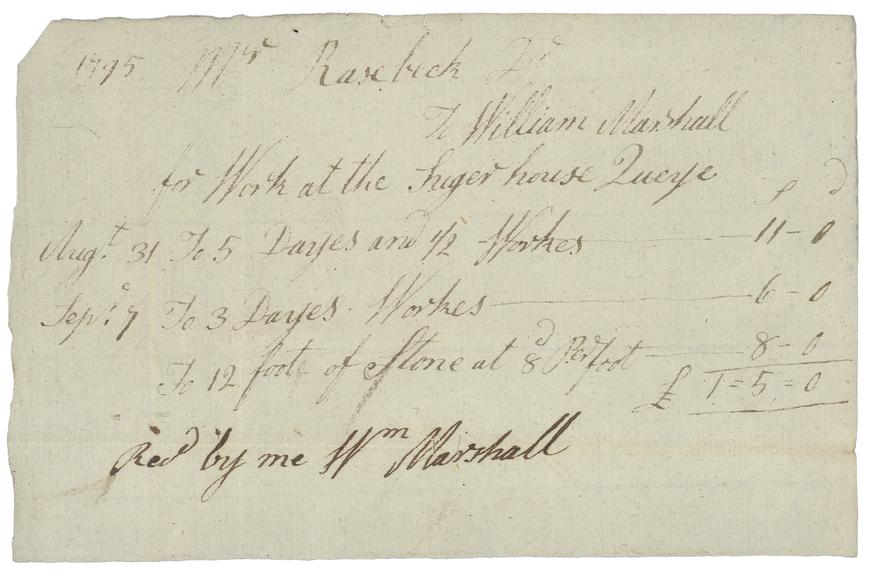 1795 Mr Rasebeck Dr
To William Marshall
for Work at the Suger house Queye
s d
Augt 31 To 5 Dayes and 1/2 Workes 11 - 0
Sepr 7 To 3 Dayes Workes 6 - 0
To 12 foot of Stone at 8d Per foot 8 - 0
£ 1 = 5 = 0
Recd by me Wm Marshall